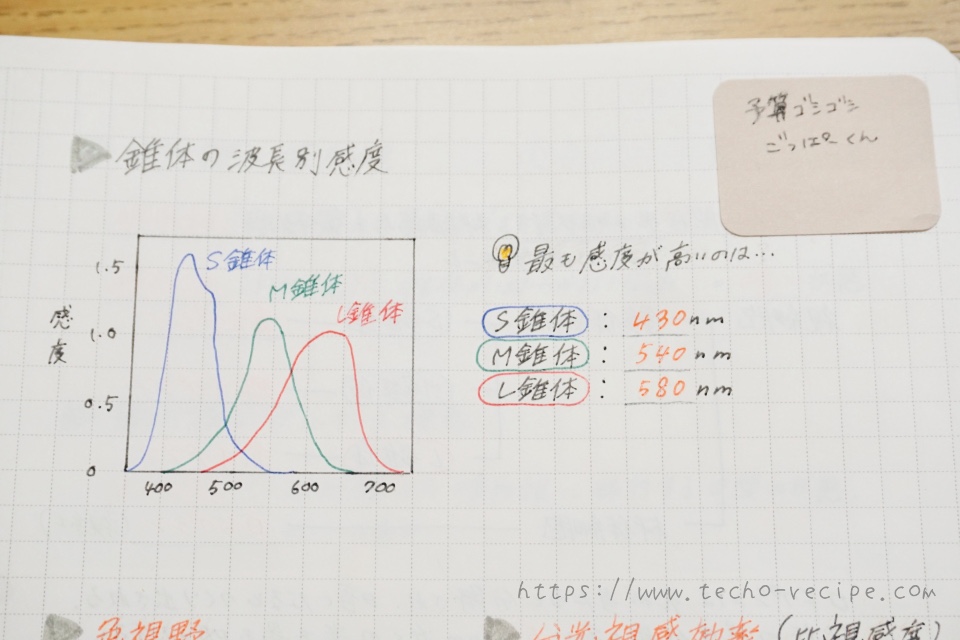 錐体の波長別感度
予算ゴシゴシ
ごっぱーくん
1.5
1.0
0.5
0
感度
S錐体
M錐体
L錐体
400 500 600 700
最も感度が高いのは…
S錐体 : 430nm
M錐体 : 540nm
L錐体 : 580nm
https://www.techo-recipe.com
色視野
分光視感効率(比視感度)